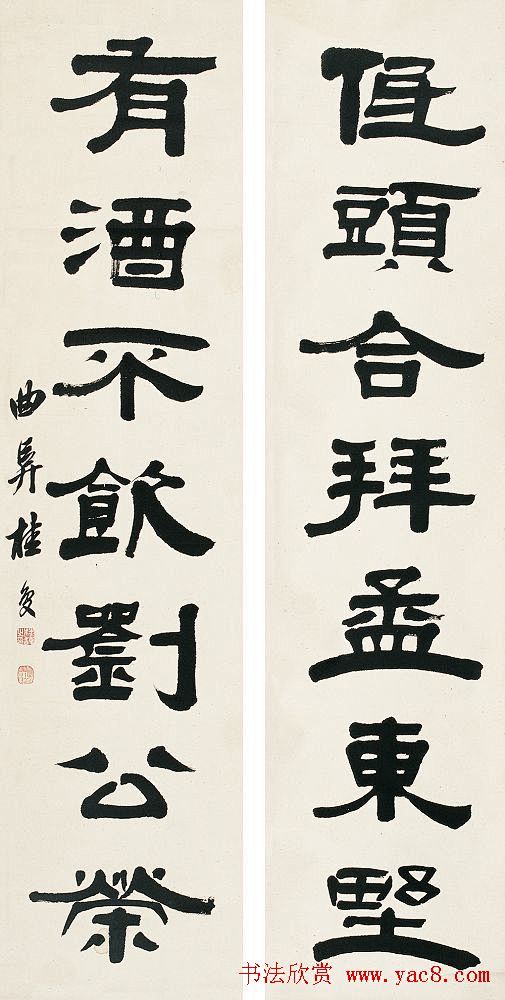 低頭合拜孟東埜
有酒不飲劉公榮
曲阜桂馥
书法欣赏 www.yac8.com